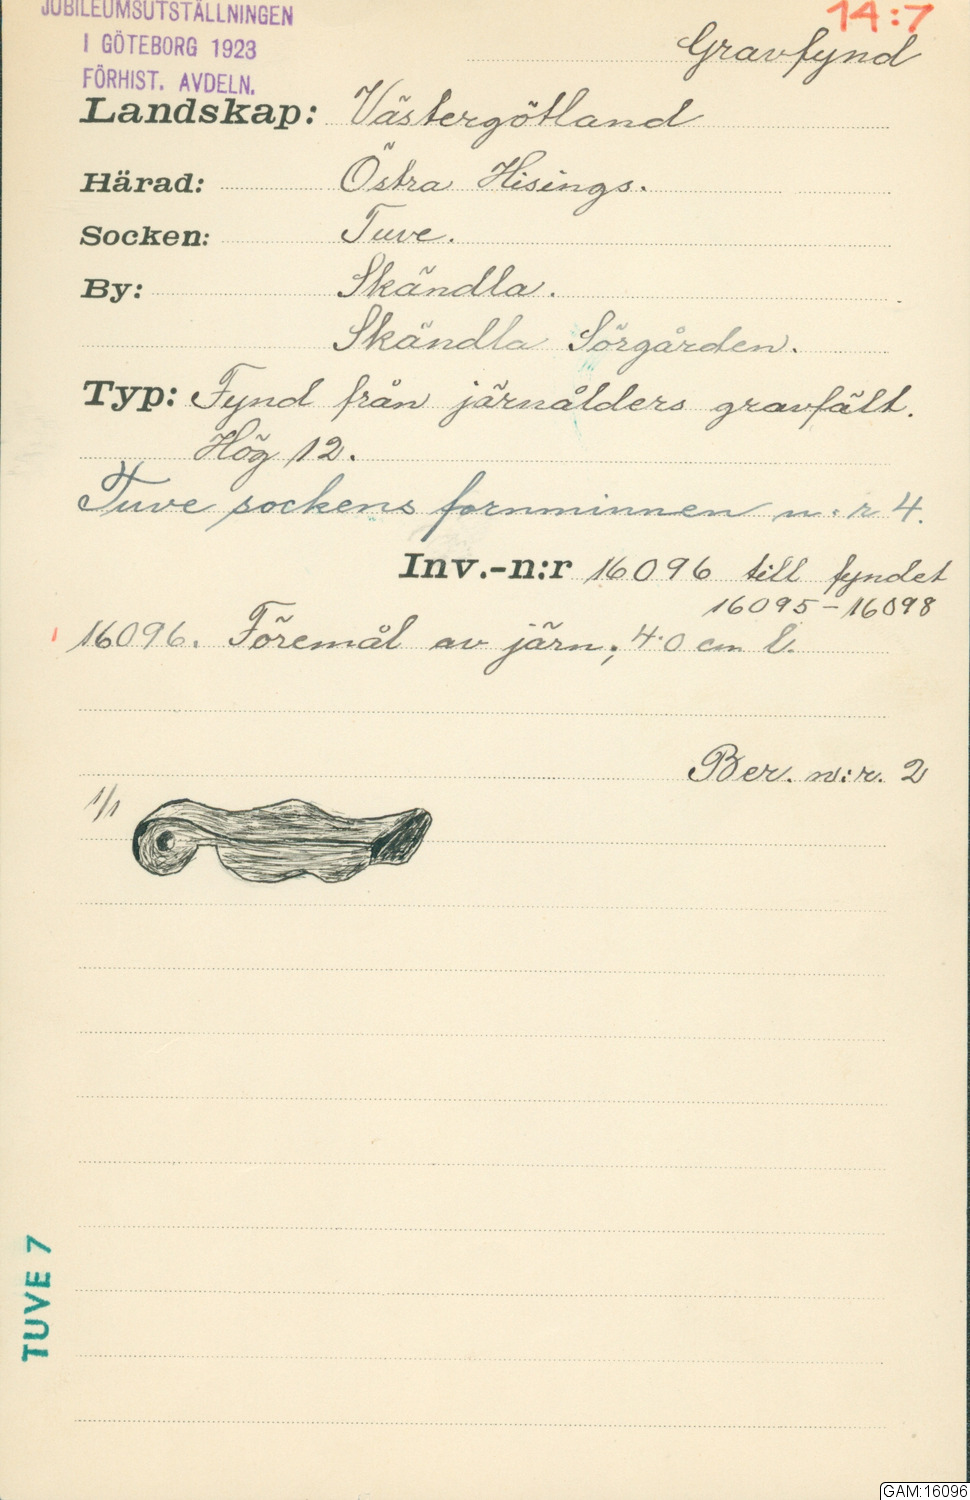 JUBILEUMSUTSTÄLLNINGEN
I GÖTEBORG 1923
FÖRHIST. AVDELN.
14:7
Gravfynd
Landskap: Västergötland
Härad: Östra Hisings.
Socken: Tuve.
By: Skändla.
Skändla Sörgården.
Typ: Fynd från järnålders gravfält.
Hög 12.
Tuve sockens fornminnen n:r 4.
Inv.-n:r 16096 till fyndet
16095-16098
16096. Föremål av järn; 4.0 cm l.
Ber. n:r. 2
1/1
TUVE 7
GAM:16096